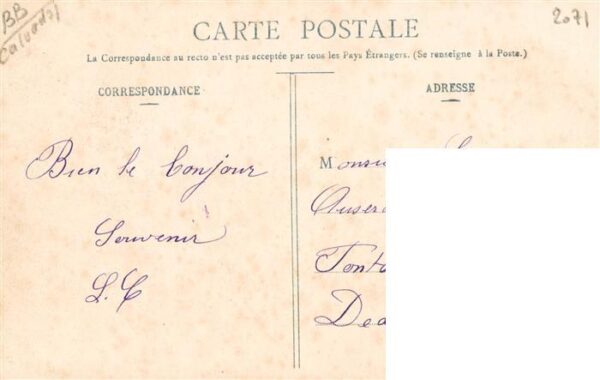 BB
Calvados
2071
CARTE POSTALE
La Correspondance au recto n'est pas acceptée par tous les Pays Étrangers. (Se renseigne à la Poste.)
CORRESPONDANCE
ADRESSE
Bien le Bonjour
Souvenir
L. C